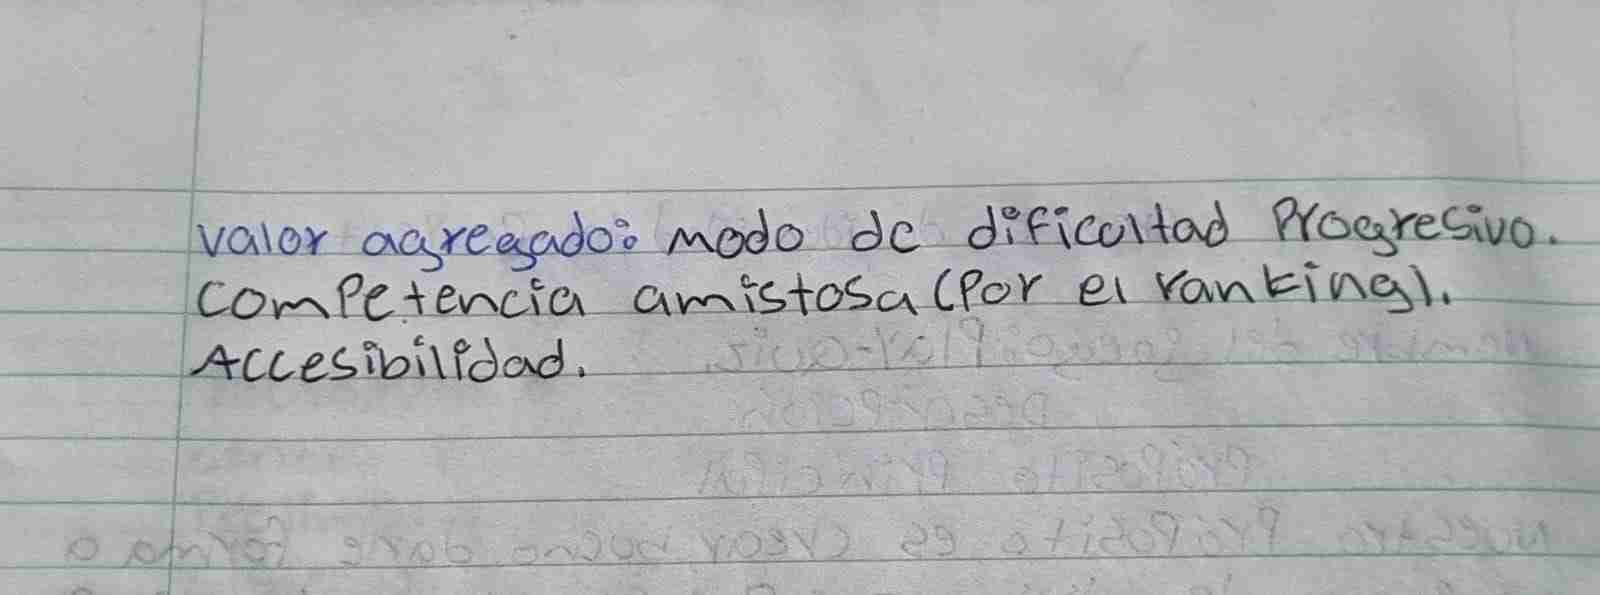 valor agregado: modo de dificultad Progresivo.
competencia amistosa (Por el ranking).
Accesibilidad.